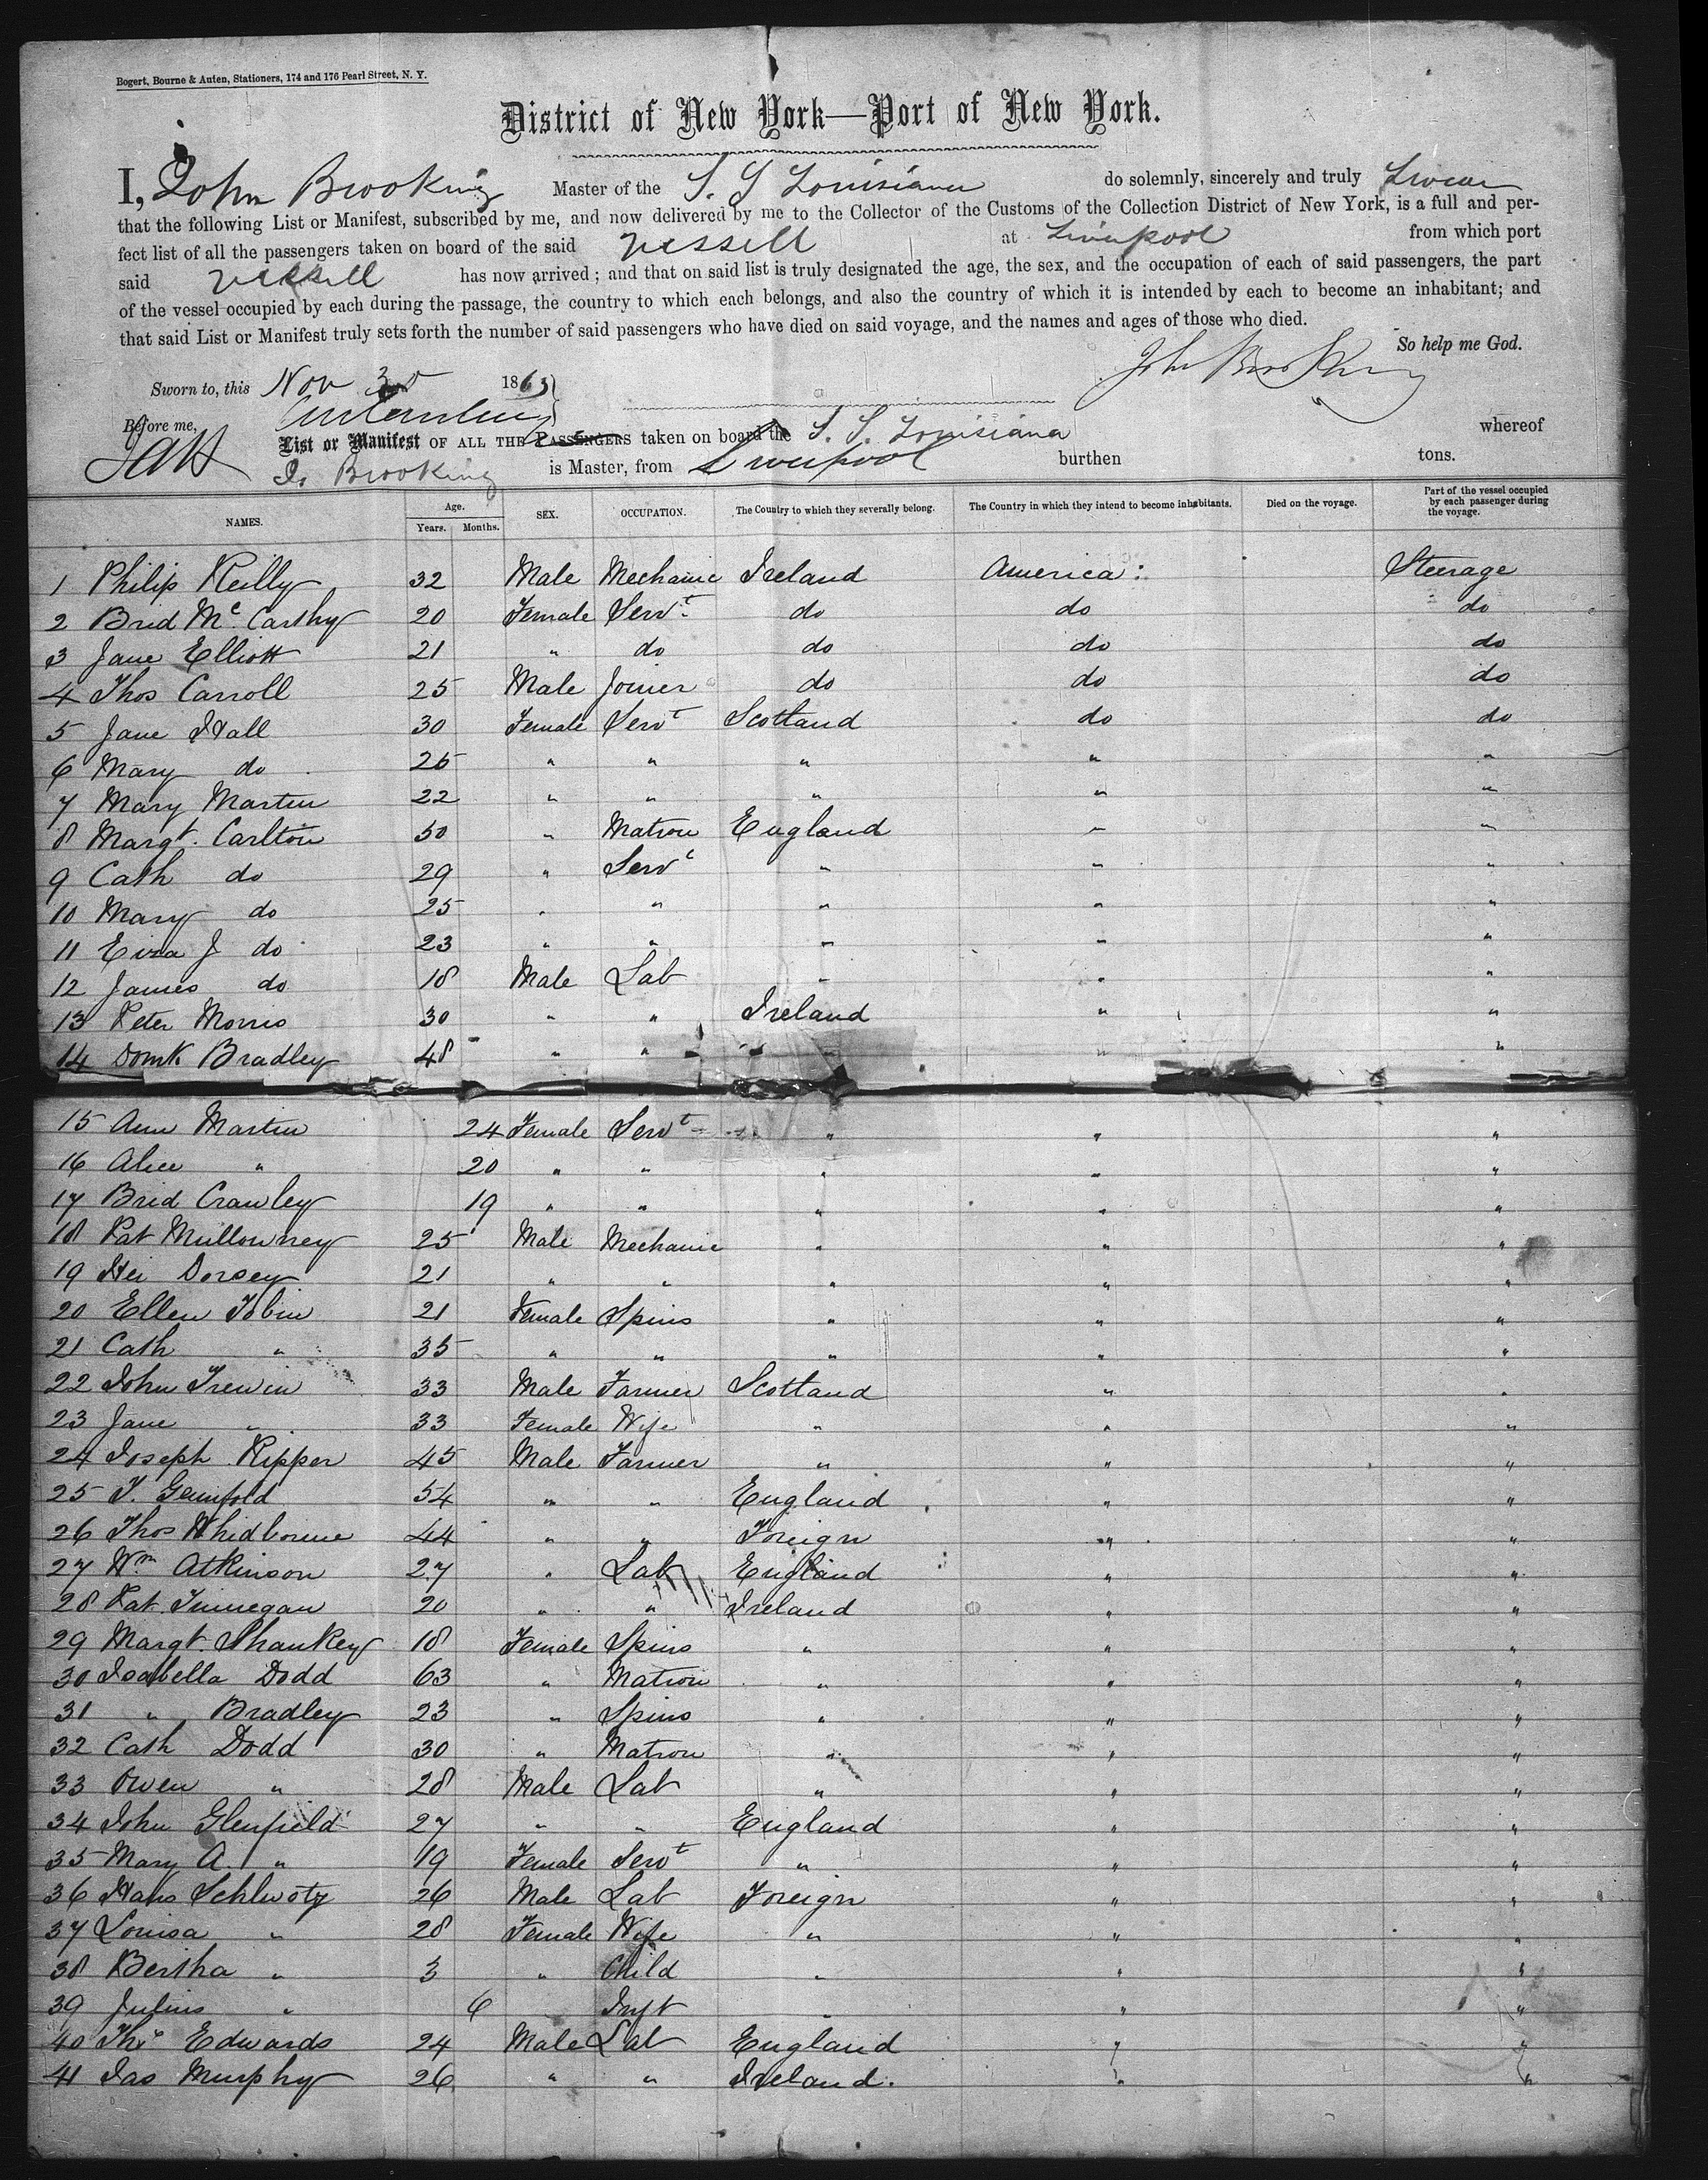 Bogert, Bourne & Auten, Stationers, 174 and 176 Pearl Street, N. Y.
District of New York—Port of New York.
I, John Brooking Master of the S. S Louisiana do solemnly, sincerely and truly Swear
that the following List or Manifest, subscribed by me, and now delivered by me to the Collector of the Customs of the Collection District of New York, is a full and per-
fect list of all the passengers taken on board of the said Vessell at Liverpool from which port
said Vessell has now arrived; and that on said list is truly designated the age, the sex, and the occupation of each of said passengers, the part
of the vessel occupied by each during the passage, the country to which each belongs, and also the country of which it is intended by each to become an inhabitant; and
that said List or Manifest truly sets forth the number of said passengers who have died on said voyage, and the names and ages of those who died.
So help me God.
John Brooking
Sworn to, this Nov 3 1863
Before me,
List or Manifest OF ALL THE PASSENGERS taken on board the S. S. Louisiana whereof
Jo Brooking is Master, from Liverpool burthen tons.
NAMES. Age. Years. Months. SEX. OCCUPATION. The Country to which they severally belong. The Country in which they intend to become inhabitants. Died on the voyage. Part of the vessel occupied by each passenger during the voyage.
1 Philip Reilly 32 Male Mechanic Ireland America Steerage
2 Brid McCarthy 20 Female Servt do do do
3 Jane Elliott 21 " do do do do
4 Thos Carroll 25 Male Joiner do do do
5 Jane Hall 30 Female Servt Scotland do do
6 Mary do 25 " " " " "
7 Mary Martin 22 " " " " "
8 Margt. Carlton 50 " Matron England " "
9 Cath do 29 " Servt " " "
10 Mary do 25 " " " " "
11 Eliza J do 23 " " " " "
12 James do 18 Male Lab " " "
13 Peter Morris 30 " " Ireland " "
14 Domk Bradley 48 " " " " "
15 Ann Martin 24 Female Servt " " "
16 Alice " 20 " " " " "
17 Brid Crawley 19 " " " " "
18 Pat Mullowney 25 Male Mechanic " " "
19 Dorsey 21 " " " " "
20 Ellen Tobin 21 Female Spins " " "
21 Cath " 35 " " " " "
22 John Trewin 33 Male Farmer Scotland " "
23 Jane " 33 Female Wife " " "
24 Joseph Kipper 45 Male Farmer " " "
25 T. 54 " " England " "
26 Thos Whidborne 44 " " Foreign " "
27 Wm Atkinson 27 " Lab England " "
28 Pat Finnegan 20 " " Ireland " "
29 Margt. Shankey 18 Female Spins " " "
30 Isabella Dodd 63 " Matron " " "
31 " Bradley 23 " Spins " " "
32 Cath Dodd 30 " Matron " " "
33 Owen " 28 Male Lab " " "
34 John Glenfield 27 " " England " "
35 Mary A. " 19 Female Servt " " "
36 Hans Schlwoty 26 Male Lab Foreign " "
37 Louisa " 28 Female Wife " " "
38 Bertha " 3 " Child " " "
39 Julius " 6 Inft " " "
40 Edwards 24 Male Lab England " "
41 Jas Murphy 26 " " Ireland. " "